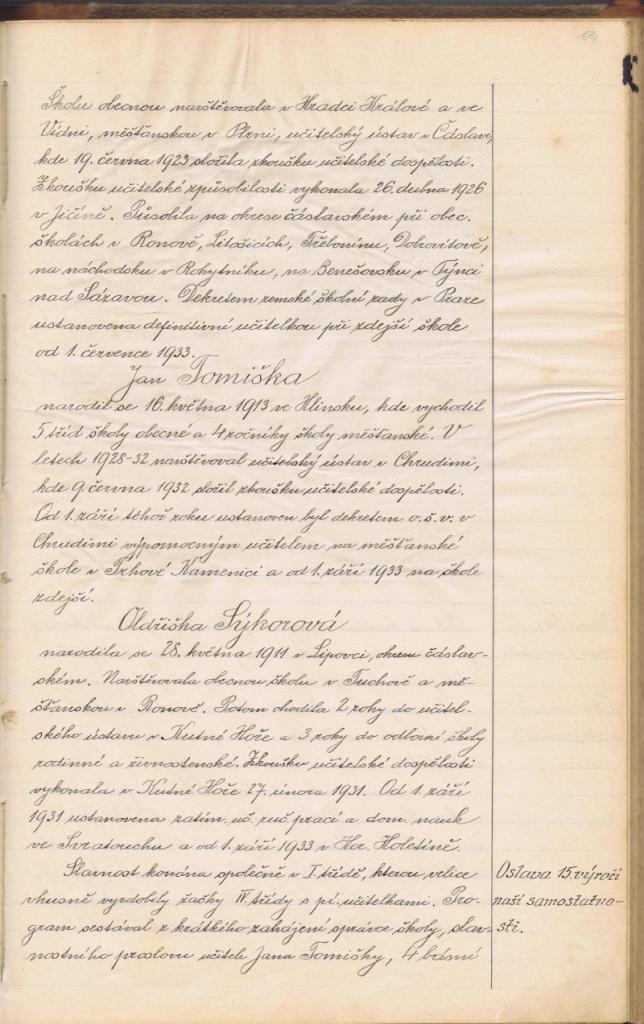 Školu obecnou navštěvovala v Hradci Králové a ve
Vídni, měšťanskou v Plzni, učitelský ústav v Čáslavi,
kde 19. června 1923 složila zkoušku učitelské dospělosti.
Zkoušku učitelské způsobilosti vykonala 26. dubna 1926
v Jičíně. Působila na okrese čáslavském při obec.
školách v Ronově, Litošicích, Třebonínu, Dobrovítově,
na náchodsku v Rokytníku, na Benešovsku v Týnci
nad Sázavou. Dekretem zemské školní rady v Praze
ustanovena definitivní učitelkou při zdejší škole
od 1. července 1933.
Jan Tomiška
narodil se 16. května 1913 ve Hlinsku, kde vychodil
5 tříd školy obecné a 4 ročníky školy měšťanské. V
letech 1928-32 navštěvoval učitelský ústav v Chrudimi,
kde 9. června 1932 složil zkoušku učitelské dospělosti.
Od 1. září téhož roku ustanoven byl dekretem o.š.v. v
Chrudimi výpomocným učitelem na měšťanské
škole v Trhové Kamenici a od 1. září 1933 na škole
zdejší.
Oldřiška Sýkorová
narodila se 28. května 1911 v Lipovci, okresu čáslav-
ském. Navštěvovala obecnou školu v Tuchově a mě-
šťanskou v Ronově. Potom chodila 2 roky do učitel-
ského ústavu v Kutné Hoře a 3 roky do odborné školy
rodinné a živnostenské. Zkoušku učitelské dospělosti
vykonala v Kutné Hoře 27. února 1931. Od 1. září
1931 ustanovena zatím. uč. ruč. prací a dom. nauk
ve Svratouchu a od 1. září 1933 v Hor. Holetíně.
Slavnost konána společně v I. třídě, kterou velice
vkusně vyzdobily žačky IV. třídy s pí. učitelkami. Pro-
gram sestával z krátkého zahájení správce školy, slav-
nostního proslovu učitele Jana Tomišky, 4 básní
Oslava 15. výročí
naší samostatno-
sti.